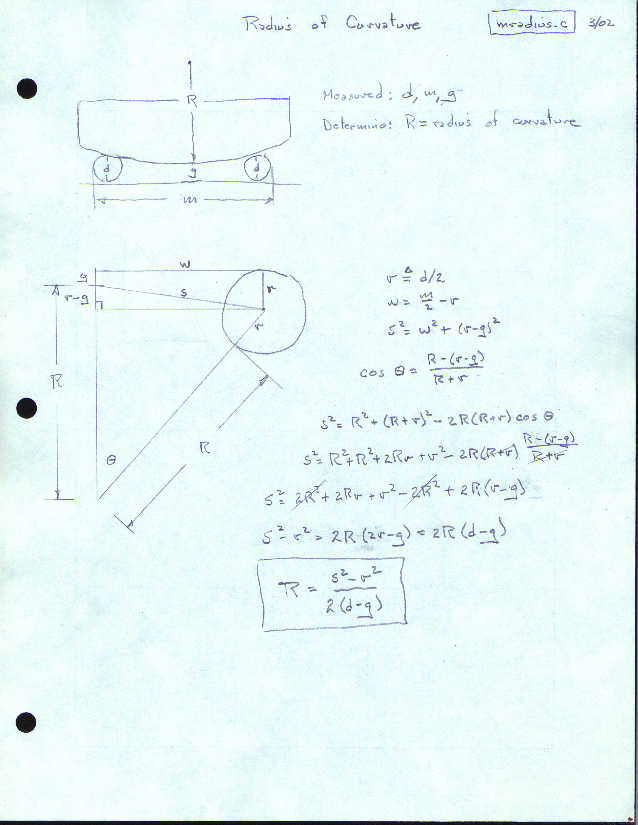 Radius of Curvature
mradius.c
3/02
R
d
g
d
m
Measured: d, m, g
Determine: R = radius of curvature
w
g
r-g
s
r
r
R
θ
R
r ≜ d/2
w = m/2 - r
s² = w² + (r-g)²
cos θ = R-(r-g) / R+r
s² = R² + (R+r)² - 2R(R+r) cos θ
s² = R² + R² + 2Rr + r² - 2R(R+r) R-(r-g) / R+r
s² = 2R² + 2Rr + r² - 2R² + 2R(r-g)
s² - r² = 2R(2r-g) = 2R(d-g)
R = s² - r² / 2(d-g)